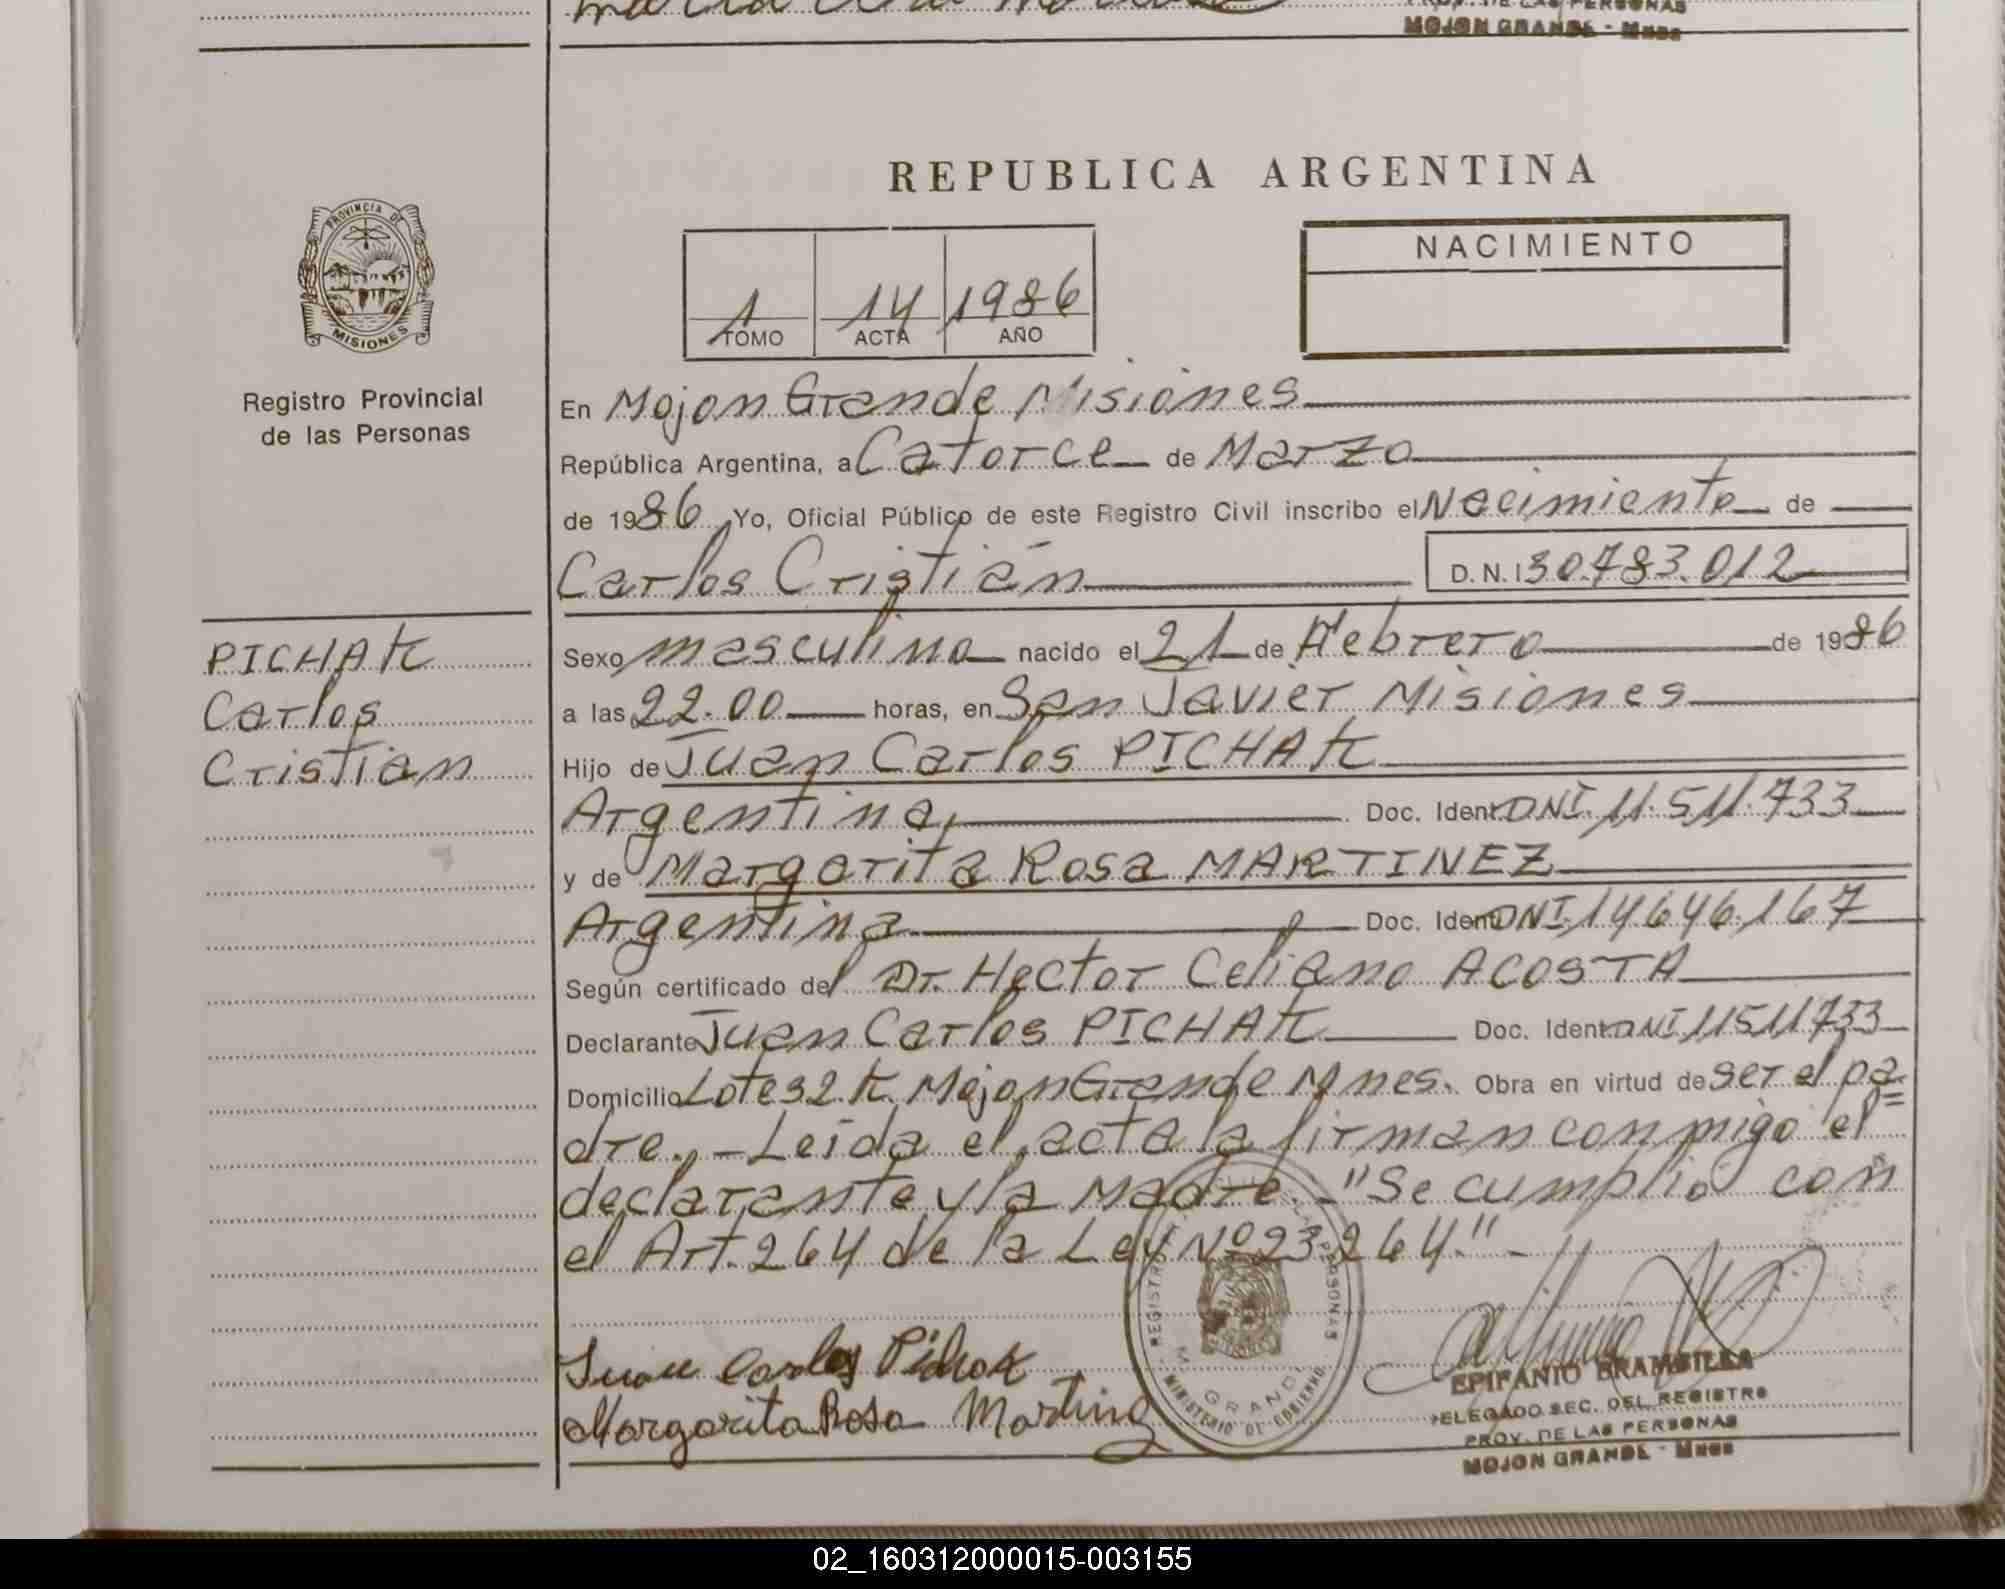 PROV. DE LAS PERSONAS
MOJON GRANDE - Mnes
REPUBLICA ARGENTINA
PROVINCIA DE
MISIONES
Registro Provincial
de las Personas
1 14 1986
TOMO ACTA AÑO
NACIMIENTO
En Mojon Grande Misiones
República Argentina, a Catorce de Marzo
de 1986 Yo, Oficial Público de este Registro Civil inscribo el Nacimiento de
Carlos Cristián D.N.I 30.783.012
PICHAK
Carlos
Cristian
Sexo masculino nacido el 21 de Febrero de 1986
a las 22.00 horas, en San Javier Misiones
Hijo de Juan Carlos PICHAK
Argentina, Doc. Ident. DNI. 11.511.733
y de Margarita Rosa MARTINEZ
Argentina Doc. Ident. DNI. 14646.167
Según certificado del Dr. Hector Celiano ACOSTA
Declarante Juan Carlos PICHAK Doc. Ident. DNI 11511733
Domicilio Lote 32.K. Mojon Grande Mnes. Obra en virtud de ser el pa=
dre. - Leída el acta la firman conmigo el
declarante y la Madre. - "Se cumplió con
el Art. 264 de la Ley Nº 23264." -
Juan Carlos Pichak
Margarita Rosa Martinez
REGISTRO PERSONAS
GRANDE
MINISTERIO DE GOBIERNO
EPIFANIO BRAMBILLA
DELEGADO SEC. DEL REGISTRO
PROV. DE LAS PERSONAS
MOJON GRANDE - Mnes
02_160312000015-003155